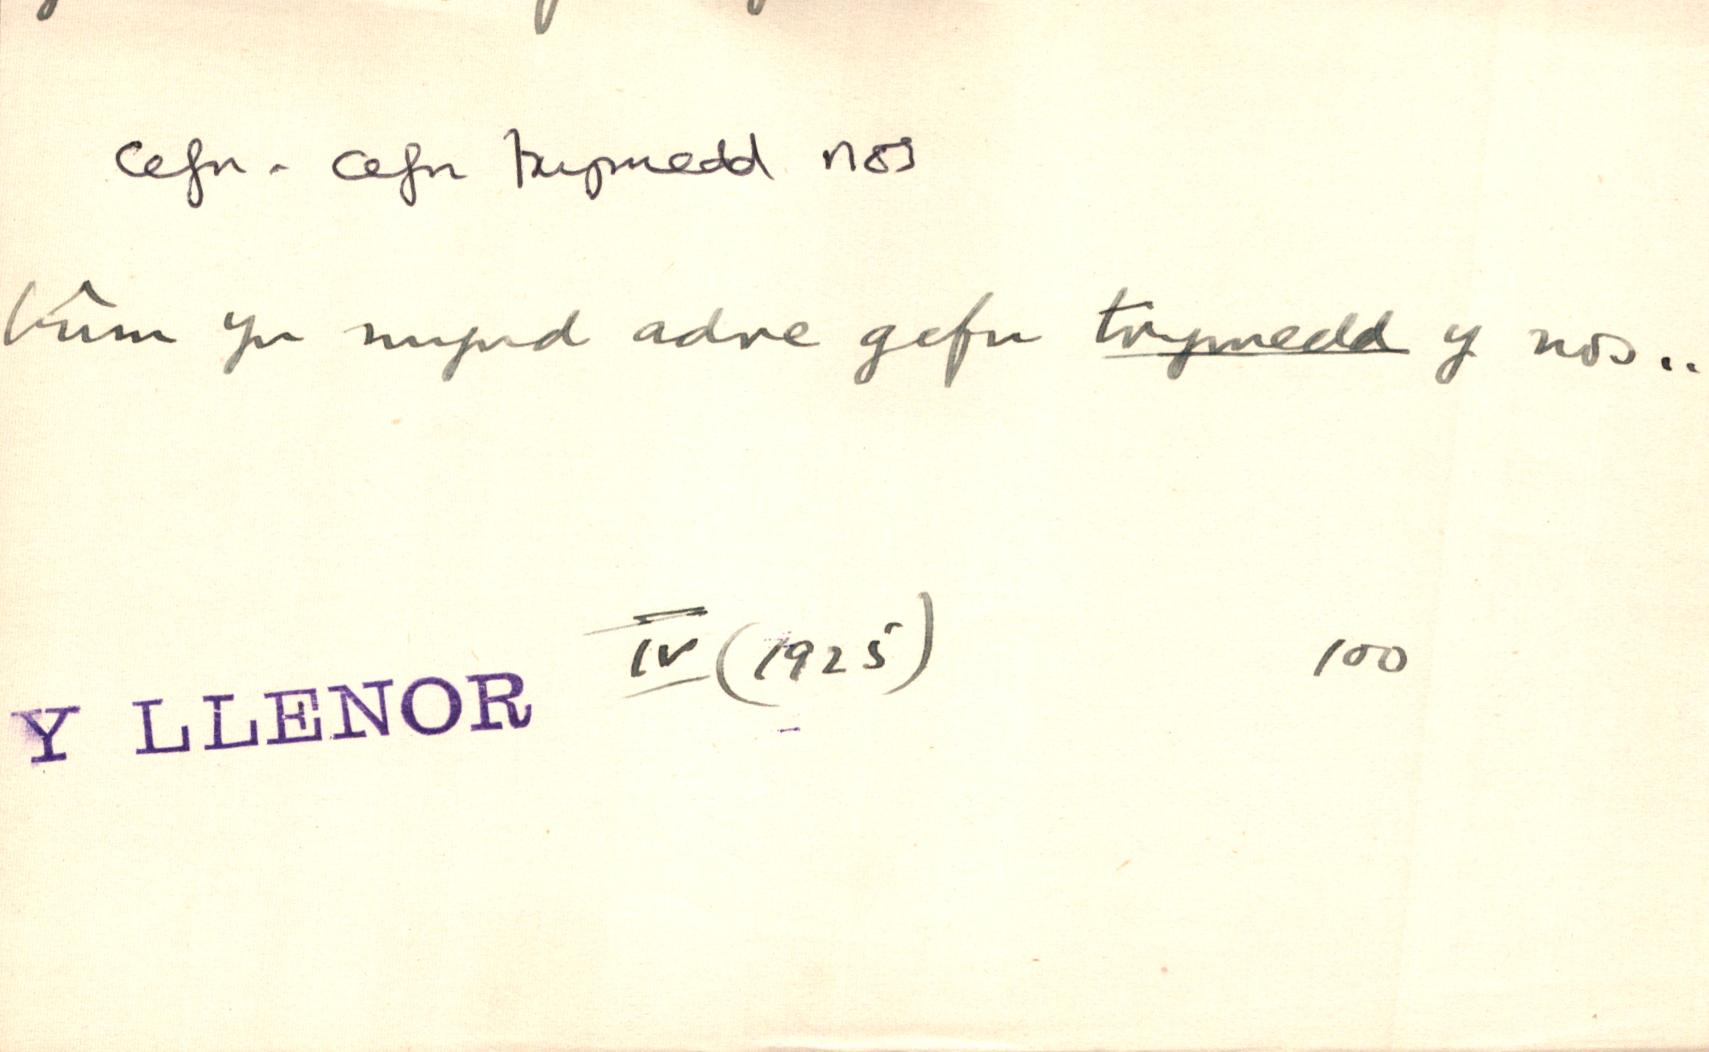 cefn - cefn trymedd nos
bûm yn mynd adre gefn trymedd y nos..
IV (1925) 100
Y LLENOR